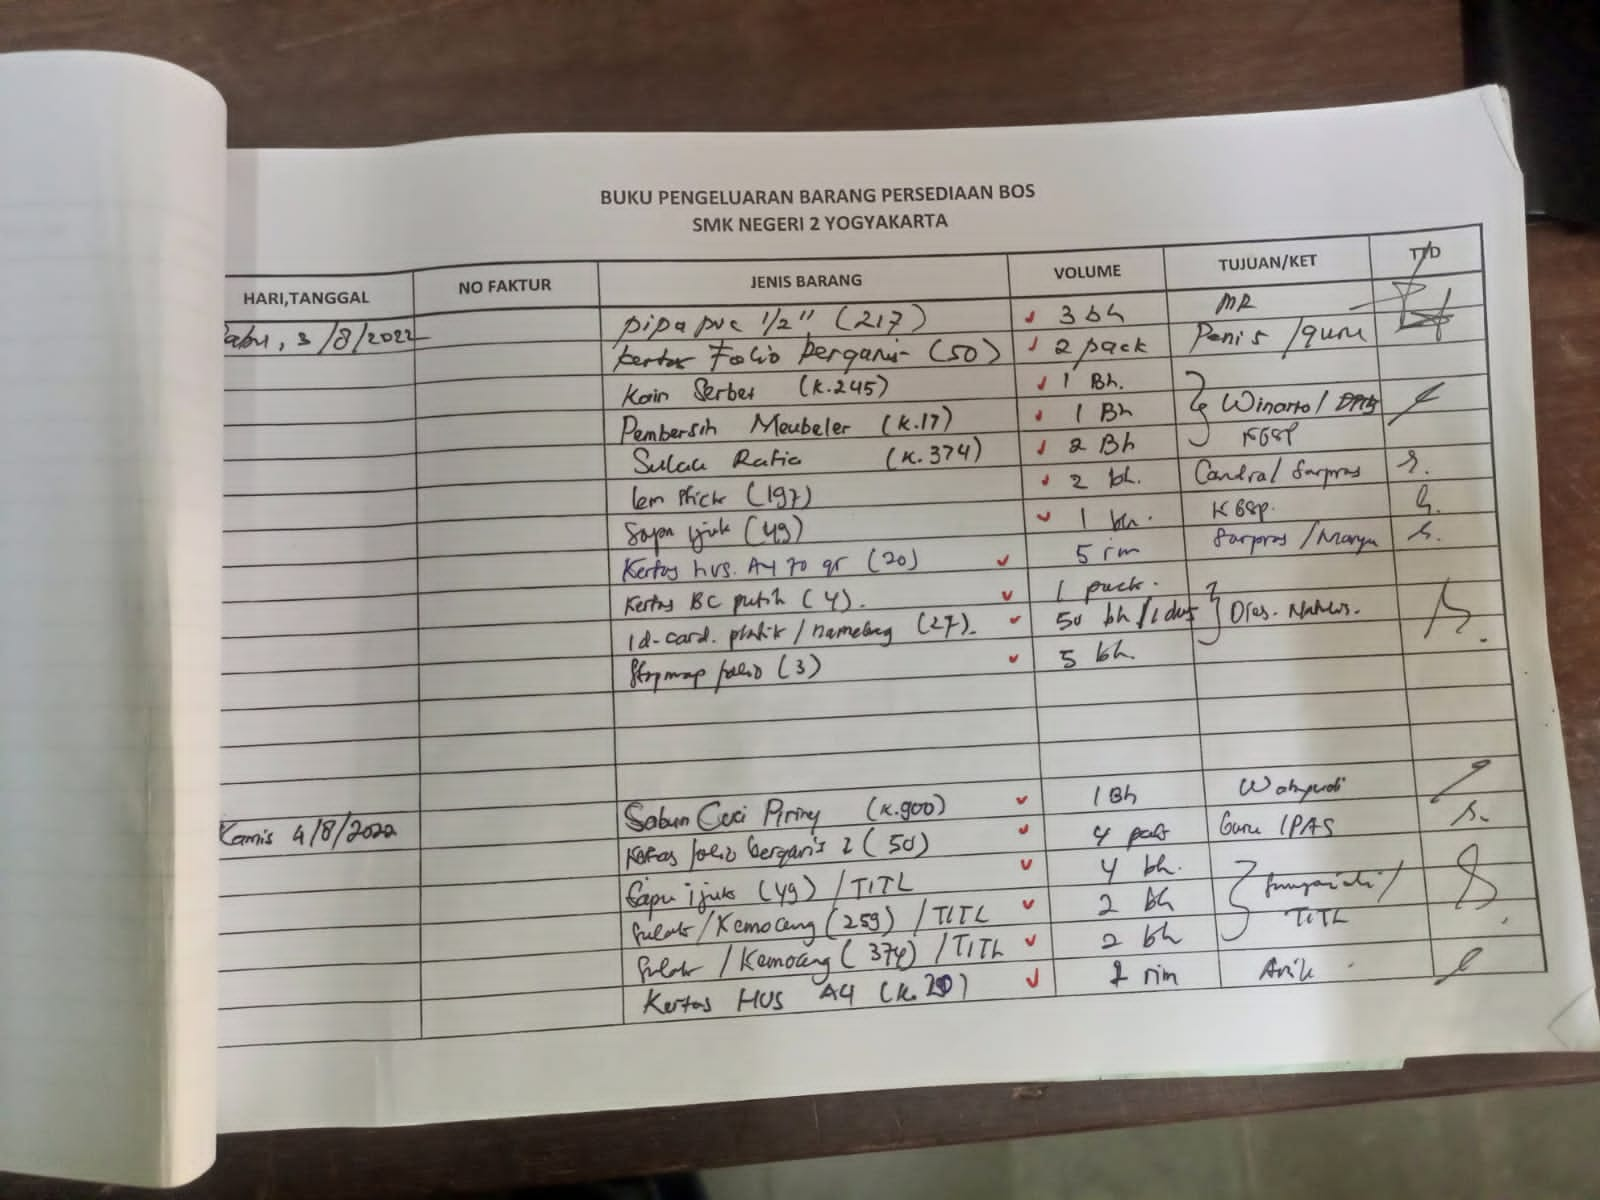 BUKU PENGELUARAN BARANG PERSEDIAAN BOS
SMK NEGERI 2 YOGYAKARTA
HARI,TANGGAL NO FAKTUR JENIS BARANG VOLUME TUJUAN/KET
abu, 3/8/2022 pipa pvc 1/2" (217) 3 bh MR
Kertas Folio bergaris (50) 2 pack /guru
Kain Serbet (K.245) 1 Bh.
Pembersih Meubeler (K.17) 1 Bh Winarto/
Sulak Rafia (K.374) 2 Bh KGSP
lem stick (197) 2 bh. Candra/ Sarpras
Sapu ijuk (49) 1 bh. KGSP.
Kertas hvs. A4 70 gr (20) 5 rim Sarpras/
Kertas BC putih (4). 1 pack.
id-card. plastik/nametag (27). 50 bh/1 dus
Stopmap folio (3) 5 bh.
Sabun Cuci Piring (K.900) 1 Bh
Kamis 4/8/2022 Kertas folio bergaris 2 (50) 4 Guru IPAS
Sapu ijuk (49) /TITL 4 bh.
Sulak/Kemoceng (259) /TITL 2 bh TITL
Sulak /Kemoceng (374) /TITL 2 bh
Kertas HVS A4 rim